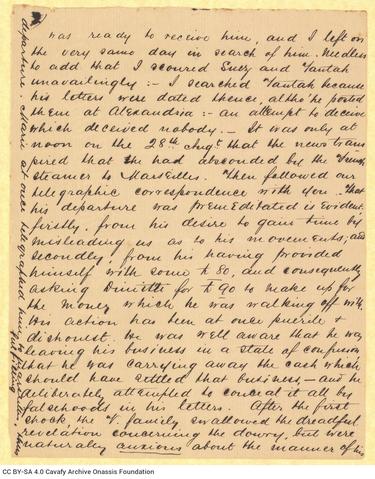 was ready to receive him, and I left on
the very same day in search of him. Needless
to add that I scoured Every and Tantah
unavailingly :- I searched Tantah because
his letters were dated thence, altho' he posted
them at Alexandria :- an attempt to deceive
which deceived nobody. - It was only at
noon on the 28th Augt. that the news trans-
pired that he had absconded by the French
steamer to Marseilles. Then followed our
telegraphic correspondence with you. That
his departure was premeditated is evident,
firstly, from his desire to gain time by
misleading us as to his movements; and
secondly, from his having provided
himself with some £80, and consequently
asking Dimitti for £90 to make up for
the money which he was walking off with.
His action has been at once puerile &
dishonest. He was well aware that he was
leaving his business in a state of confusion
that he was carrying away the cash which
should have settled that business, - and he
deliberately attempted to conceal it all by
falsehoods in his letters. After the first
shock the V. family swallowed the dreadful
revelation concerning the dowry, but were
naturally anxious about the manner of his
departure. Marie at once telegraphed him to Marseilles,
CC BY-SA 4.0 Cavafy Archive Onassis Foundation